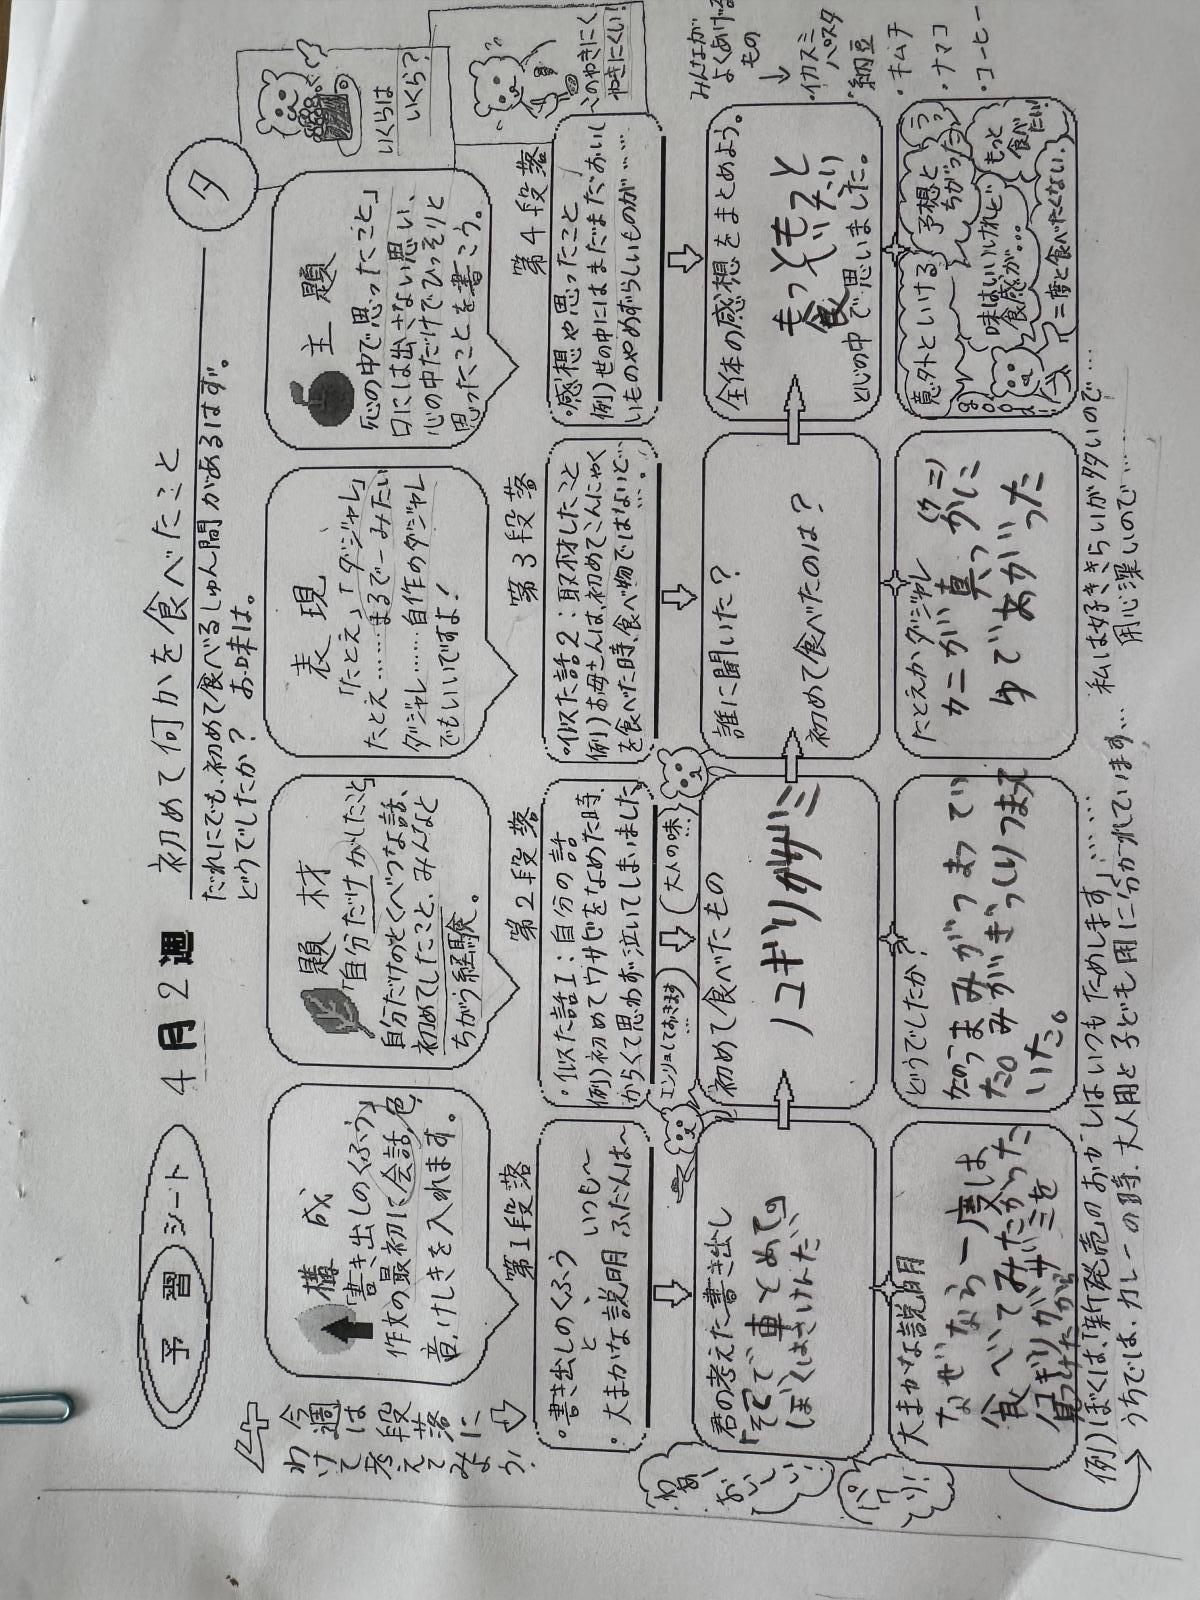 予習シート
4月2週
初めて何かを食べたこと
だれにでも、初めて食べるしゅん間があるはず。
どうでしたか？お味は。
夕
いくらは
いくら？
このやきにく
やきにくい！
今週は段落に
わけて考えてみよう！
構成
「書き出しのくふう」
作文の最初に会話、色、
音、けしきを入れます。
題材
「自分だけがしたこと」
自分だけのとくべつな話、
初めてしたこと、みんなと
ちがう経験。
表現
「たとえ」「ダジャレ」
たとえ……まるで〜みたい
ダジャレ……自作のダジャレ
でもいいですよ！
主題
「心の中で思ったこと」
口には出さない思い、
心の中だけでひっそりと
思ったことを書こう。
第1段落
・書き出しのくふう
と いつも〜
・大まかな説明 ふだんは〜
第2段落
・似た話1：自分の話
例）初めてワサビをなめた時、
からくて思わず泣いてしまいました
第3段落
・似た話2：取材したこと
例）お母さんは、初めてこんにゃく
を食べた時、食べ物ではないと…
第4段落
・感想や思ったこと
例）世の中にはまだまだおいし
いものやめずらしいものが……
エンリョしておきます…
大人の味…
君の考えた書き出し
「そこで車とめて。」
ぼくはさけんだ、
初めて食べたもの
ノコギリガザミ
誰に聞いた？
初めて食べたのは？
全体の感想をまとめよう。
もっともっと
食べたい
と心の中で思いました。
みんなが
よくあげる
もの
・イカスミ
パスタ
・納豆
・キムチ
・ナマコ
・コーヒー
わぁーおいしい！
パクリ！
大まかな説明
なぜなら一度は
食べてみたかった
ノコギリガザミを
見つけたから
どうでしたか？
カニのうまみがつまってい
た。みがぎっしりつまって
いた。
たとえかダジャレ
カニが真っかに(クニ)
ゆであがった
意外といける
予想と
ちがったっ
もっと
食べたい！
味はいいけれど
食感が…
二度と食べたくない。
例）ぼくは、「新発売」のおかしはいつもためします」……
私は好ききらいが多いので…
うちでは、カレーの時、大人用と子ども用に分かれています…
用心深いので……